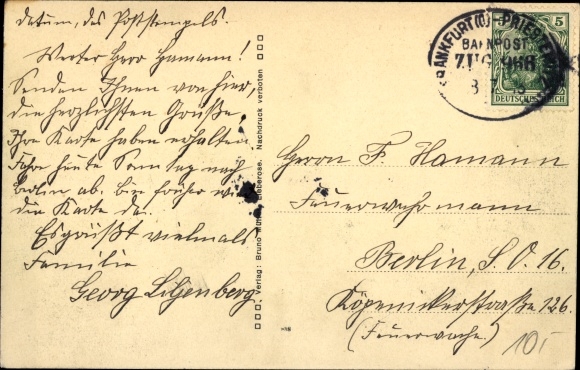 datum, des Poststempels.
Werter Herr Hamann!
Senden Ihnen von hier,
die herzlichsten Grüße,
Ihre Karte haben erhalten
Fahre heute Sonntag nach
Berlin ab. bin früher wie
die Karte da.
Es grüßt vielmals
Familie
Georg Liljenberg
Verlag: Bruno Lieberose. Nachdruck verboten
FRANKFURT(O)-
BAHNPOST
ZUG 966
5 5
DEUTSCHES REICH
Herrn F. Hamann
Feuerwehrmann
Berlin, S. O. 16.
Köpenickerstraße 126.
(Feuerwache.)
10,-